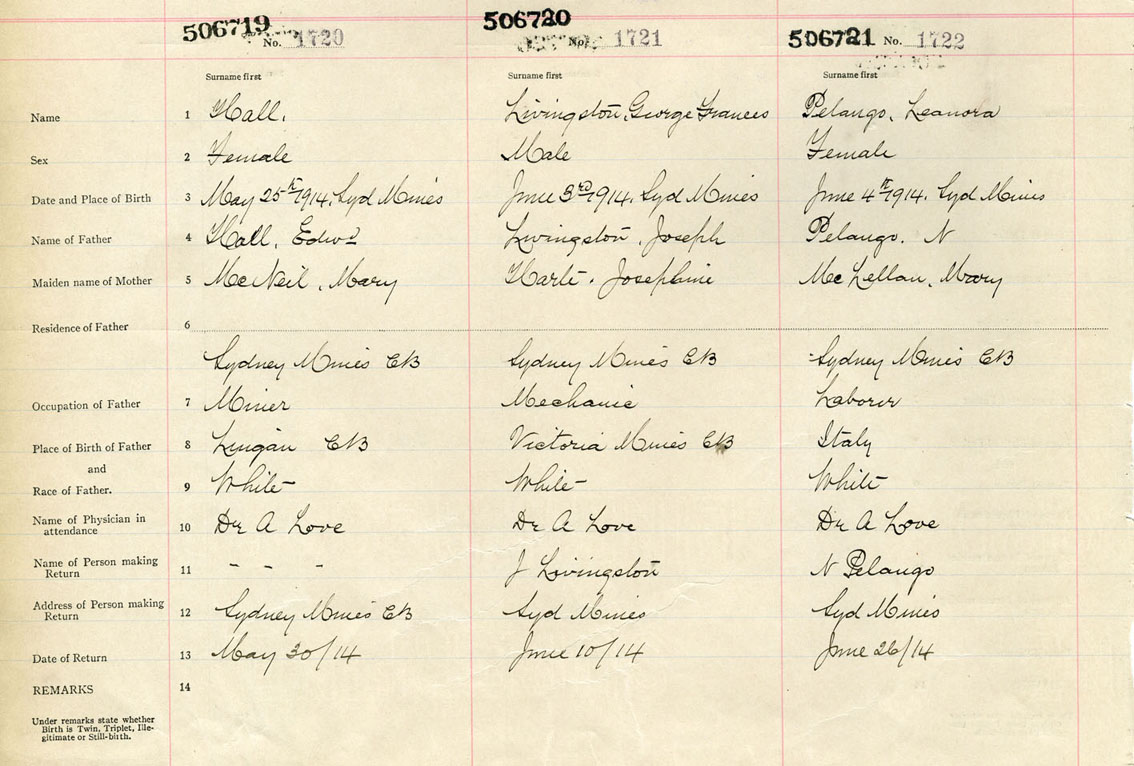 506719 No. 1720 506720 No. 1721 506721 No. 1722
Surname first Surname first Surname first
Name 1 Hall. Livingston, George Frances Pelango, Leanora
Sex 2 Female Male Female
Date and Place of Birth 3 May 25th 1914, Syd Mines June 3rd 1914, Syd Mines June 4th 1914, Syd Mines
Name of Father 4 Hall, Edwd Livingston, Joseph Pelango. N
Maiden name of Mother 5 McNeil, Mary Josephine McLellan, Mary
Residence of Father 6
Sydney Mines CB Sydney Mines CB Sydney Mines CB
Occupation of Father 7 Miner Mechanic Laborer
Place of Birth of Father 8 Lingan CB Victoria Mines CB Italy
and
Race of Father. 9 White White White
Name of Physician in attendance 10 Dr A Love Dr A Love Dr A Love
Name of Person making Return 11 - - - J Livingston N Pelango
Address of Person making Return 12 Sydney Mines CB Syd Mines Syd Mines
Date of Return 13 May 30/14 June 10/14 June 26/14
REMARKS 14
Under remarks state whether
Birth is Twin, Triplet, Ille-
gitimate or Still-birth.